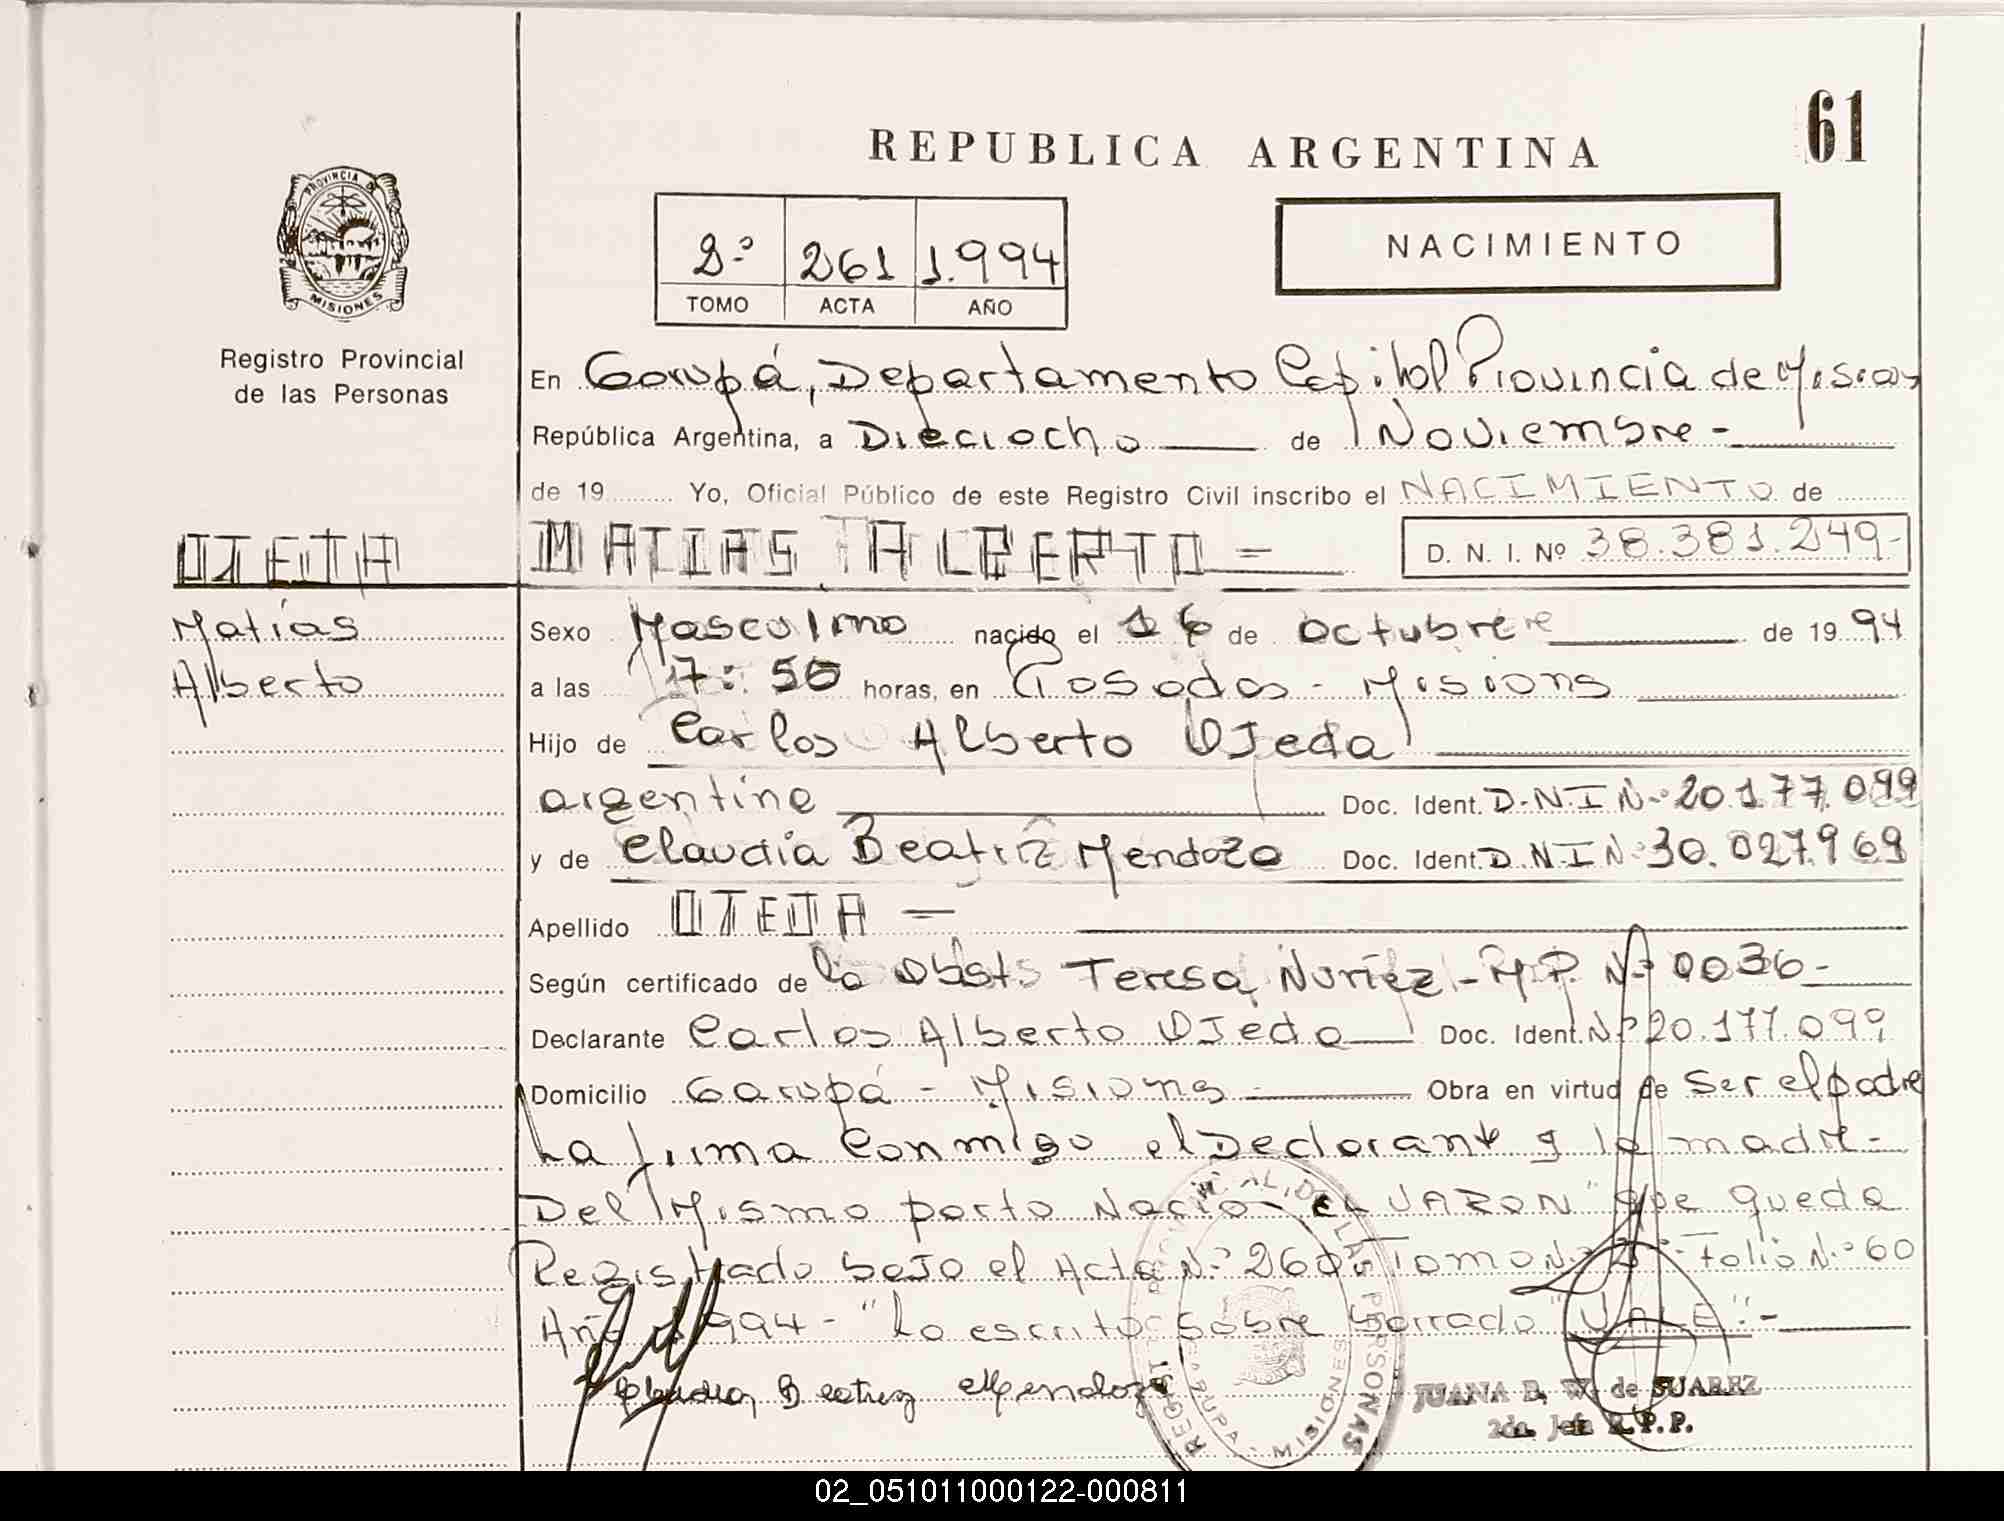 61
REPUBLICA ARGENTINA
PROVINCIA DE
MISIONES
Registro Provincial
de las Personas
2º 261 1.994
TOMO ACTA AÑO
NACIMIENTO
En Garupá, Departamento Capital Provincia de Misiones
República Argentina, a Dieciocho de Noviembre -
de 19 Yo, Oficial Público de este Registro Civil inscribo el NACIMIENTO de
OJEDA MATIAS ALBERTO = D. N. I. Nº 38.381.249-
Matías
Alberto
Sexo Masculino nacido el 16 de octubre de 1994
a las 17:50 horas, en Posadas - Misions
Hijo de Carlos Alberto Ojeda
argentino Doc. Ident. D.N.I Nº 20.177.099
y de Claudia Beatríz Mendoza Doc. Ident. D.N.I Nº 30.027.969
Apellido OJEDA =
Según certificado de la Obst. Teresa Nuñez - M.P. Nº 0036-
Declarante Carlos Alberto Ojeda Doc. Ident. Nº 20.177.099
Domicilio Garupá - Misions Obra en virtud de ser el padre
La firma conmigo el Declarante y la madre -
Del Mismo parto Nacio "EL VARON" que queda
Registrado bajo el Acta Nº 260 Tomo Nº 2º - Folio Nº 60
Año 1994 - "Lo escrito sobre borrado "VALE".-
Claudia Beatriz Mendoza
REGISTRO PROVINCIAL DE LAS PERSONAS
GARUPA - MISIONES
JUANA B. W. de SUAREZ
2da. Jefa R.P.P.
02_051011000122-000811